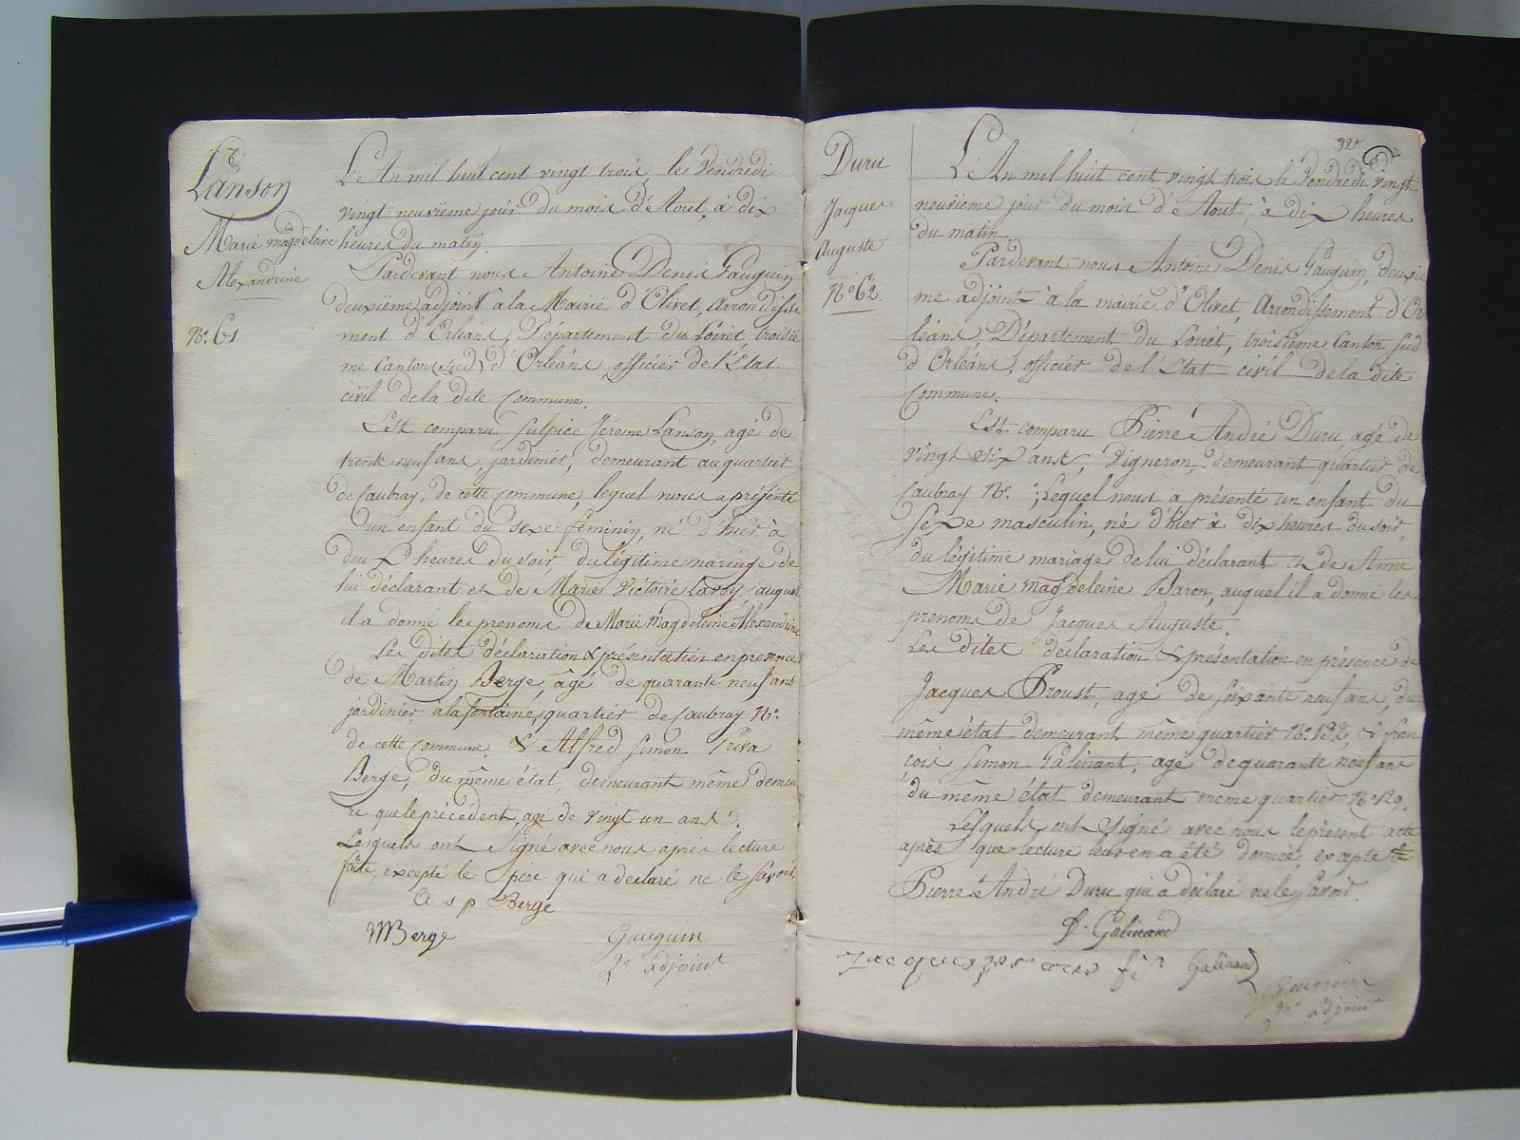 Lanson
Marie magdeleine
Alexandrine
No. 61
L'An mil huit cent vingt trois, le Vendredi
vingt neuvieme jour du mois d'Aout, à dix
heures du matin
Pardevant nous Antoine Denis Gauguin
deuxiëme adjoint à la Mairie d'Olivet, Arrondisse
ment d'Orléans, Département du Loiret, troisie
me Canton (sud) d'Orléans, officier de l'État
civil de la dite Commune.
Est comparu Sulpice Jerome Lanson, agé de
trente neuf ans, jardinier, demeurant au quartier
de Caubray, de cette commune, lequel nous a présenté
un enfant du sexe féminin, né d'hier à
deux heures du soir du légitime mariage de
lui déclarant et de Marie Victoire auquel
il a donné les prenoms de Marie Magdeleine Alexandrine
Les dites déclaration & présentation en presence
de Martin Berge, âgé de quarante neuf ans
jardinier, à la fontaine, quartier de Caubray No.
de cette commune & Alfred Simon
Berge, du même état, demeurant même demeu
re que le précédent, agé de vingt un ans.
Lesquels ont signé avec nous après lecture
faite, excepté le père qui a declaré ne le savoir
a s p Berge
M Berge Gauguin
2e adjoint
325
Duru
Jacques
Auguste
No 62.
L'An mil huit cent vingt trois le Vendredi vingt
neuvième jour du mois d'Aout, à dix heures
du matin
Pardevant nous Antoine Denis Gauguin, deuxie
me adjoint à la mairie d'Olivet, Arrondissement d'Or
léans, Département du Loiret, troisième Canton sud
d'Orléans, officier de l'Etat civil de la dite
Commune.
Est comparu Pierre André Duru agé de
vingt six ans, vigneron demeurant quartier de
Caubray No. ; Lequel nous a présenté un enfant du
sexe masculin, né d'hier à dix heures du soir,
du légitime mariage de lui déclarant et de Anne
Marie magdeleine Baron, auquel il a donné les
prenoms de Jacques Auguste.
Les dites déclaration & présentation en présence de
Jacques Proust, agé de soixante neuf ans, de
même état demeurant même quartier No. 122, & fran
cois Simon Galinant, agé de quarante neuf ans
du même état demeurant même quartier No 129.
Lesquels ont signé avec nous le présent acte
après que lecture leur en a été donnée, excepte le
Pierre André Duru qui a déclaré ne le savoir.
S. Galinand
Jacques fis Galinand
Gauguin
2e adjoint